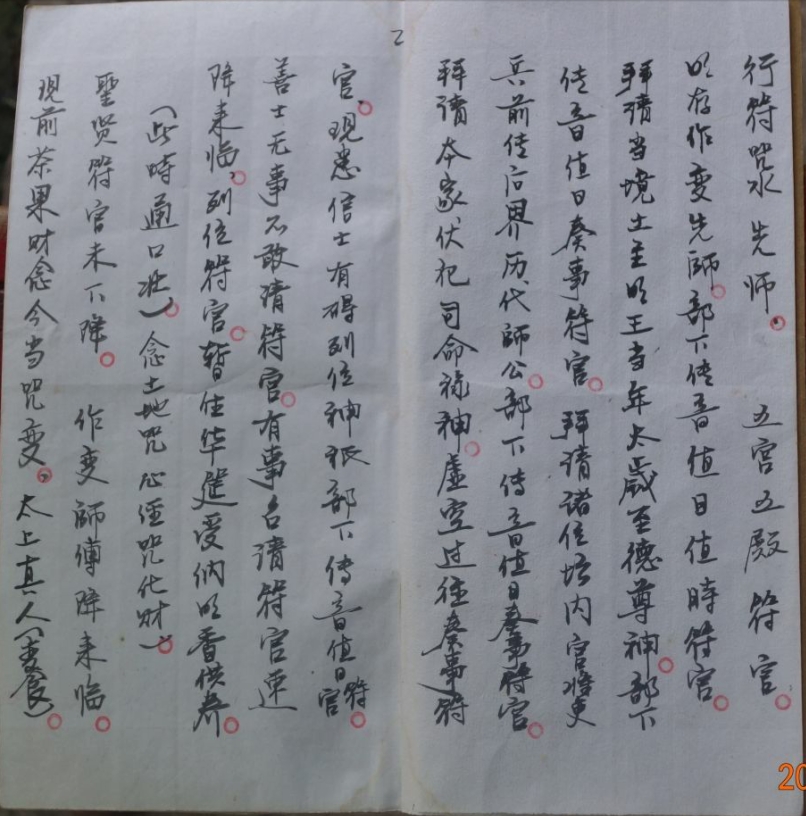 行符咒水先师。 五宫五殿符官。
明存作变先師。部下传音值日值時符官。
拜请当境土主明王当年太歲至德尊神。部下
传音值日奏事符官。拜请諸位坛内官將吏
兵前传后界历代師公。部下传音值日奏事符官。
拜请本家伏祀司命祿神。虚空过往奏事符
官。現患信士有碍列位神祇部下传音值日符官。
善士无事不敢请符官。有事名请符官速
降来临。列位符官。暂住华筵受纳明香供养。
(此時通口壮)。念土地咒心经咒化财)。
聖贤符官未下降。 作变師傅降来临。
現前茶果财念今当咒变。太上真人(变食)。
2
20